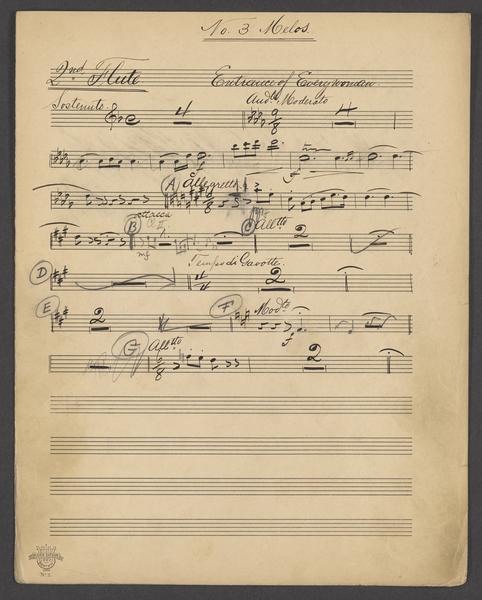 No. 3 Melos.
2nd. Flute.
Entrance of Everywoman.
Sostenuto.
4
Andte. Moderato
9
8
4
A
Allegretto
6
8
B
attacca
mf
C
Alltto
2
D
Tempo di Gavotte.
4
4
2
E
2
F
Modto
f
G
Alltto
6
8
2
No 2.